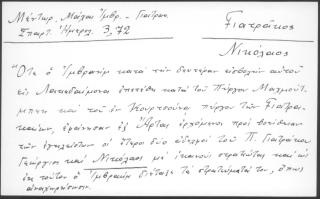 Μέντωρ, Μάχαι Ἰμβρ. - Γιατρακ.
Σπαρτ. Ἡμερολ. 3, 72
Γιατράκος
Νικόλαος
"Ὅτε ὁ Ἰμβραὴμ κατὰ τὴν δευτέραν εἰσβολὴν αὐτοῦ
εἰς Λακεδαίμονα ἐπετέθη κατὰ τοῦ Πύργου Μαχμούτ-
μπεη καὶ τοῦ ἐν Κουρτσούνᾳ πύργου τῶν Γιατρα-
καίων, ἐξ Ἄρτας ἐρχόμενοι πρὸς βοήθειαν
τῶν ἐγκλείστων οἱ ἕτεροι δύο ἀδελφοὶ τοῦ Π. Γιατράκου
Γεώργιος καὶ Νικόλαος μὲ ἱκανοὺς στρατιώτας καὶ ὡς
ἐκ τούτου ὁ Ἰμβραὴμ διέταξε τὰ στρατεύματά του, ὅπως
ἀναχωρήσωσιν.